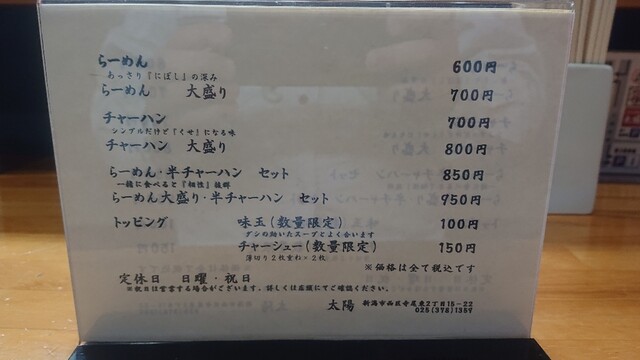 らーめん 600円
あっさり『にぼし』の深み
らーめん 大盛り 700円
チャーハン 700円
シンプルだけど『くせ』になる味
チャーハン 大盛り 800円
らーめん・半チャーハン セット 850円
一緒に食べると『相性』抜群
らーめん大盛り・半チャーハン セット 950円
トッピング 味玉(数量限定) 100円
ダシの効いたスープとよく合います
チャーシュー(数量限定) 150円
薄切り2枚重ね×2枚
※価格は全て税込です
定休日 日曜・祝日
※祝日は営業する場合がございます。詳しくは店頭にてご確認ください。
太陽 新潟市西区寺尾東2丁目15-22
025(378)1357